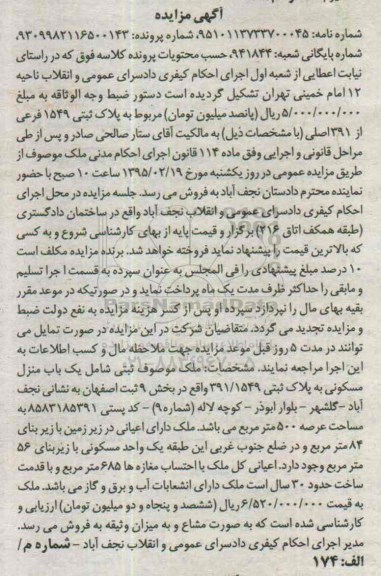 آگهی مزایده
شماره نامه: ۹۵۱۰۱۱۳۷۳۳۷۰۰۰۴۵، شماره پرونده: ۹۳۰۹۹۸۲۱۱۶۵۰۰۱۴۳،
شماره بایگانی شعبه: ۹۴۱۸۴۴، حسب محتویات پرونده کلاسه فوق که در راستای
نیابت اعطایی از شعبه اول اجرای احکام کیفری دادسرای عمومی و انقلاب ناحیه
۱۲ امام خمینی تهران تشکیل گردیده است دستور ضبط وجه الوثاقه به مبلغ
۵/۰۰۰/۰۰۰/۰۰۰ ریال (پانصد میلیون تومان) مربوط به پلاک ثبتی ۱۵۴۹ فرعی
از ۳۹۱ اصلی (با مشخصات ذیل) به مالکیت آقای ستار صالحی صادر و پس از طی
مراحل قانونی و اجرایی وفق ماده ۱۱۴ قانون اجرای احکام مدنی ملک موصوف از
طریق مزایده عمومی در روز یکشنبه مورخ ۱۳۹۵/۰۲/۱۹ ساعت ۱۰ صبح با حضور
نماینده محترم دادستان نجف آباد به فروش می رسد. جلسه مزایده در محل اجرای
احکام کیفری دادسرای عمومی و انقلاب نجف آباد واقع در ساختمان دادگستری
(طبقه همکف اتاق ۲۱۶) برگزار و قیمت پایه از بهای کارشناسی شروع و به کسی
که بالاترین قیمت را پیشنهاد نماید فروخته خواهد شد. برنده مزایده مکلف است
۱۰ درصد مبلغ پیشنهادی را فی المجلس به عنوان سپرده به قسمت اجرا تسلیم
و مابقی را حداکثر ظرف مدت یک ماه پرداخت نماید و در صورتیکه در موعد مقرر
بقیه بهای مال را نپردازد سپرده او پس از کسر هزینه مزایده به نفع دولت ضبط
و مزایده تجدید می گردد. متقاضیان شرکت در این مزایده در صورت تمایل می
توانند در مدت ۵ روز قبل موعد مزایده جهت ملاحظه مال و کسب اطلاعات به
این اجرا مراجعه نمایند. مشخصات: ملک موصوف ثبتی شامل یک باب منزل
مسکونی به پلاک ثبتی ۳۹۱/۱۵۴۹ واقع در بخش ۹ ثبت اصفهان به نشانی نجف
آباد -گلشهر - بلوار ابوذر - کوچه لاله (شماره ۹) - کد پستی ۸۵۸۳۱۸۵۳۹۱ به
مساحت عرصه ۵۰۰ متر مربع می باشد. ملک دارای اعیانی در زیر زمین با زیر بنای
۸۴ متر مربع و در ضلع جنوب غربی این طبقه یک واحد مسکونی با زیربنای ۵۶
متر مربع وجود دارد. اعیانی کل ملک با احتساب مغازه ها ۶۸۵ متر مربع و با قدمت
ساخت حدود ۳۰ سال است ملک دارای انشعابات آب و برق و گاز می باشد. ملک
به قیمت ۶/۵۲۰/۰۰۰/۰۰۰ ریال (ششصد و پنجاه و دو میلیون تومان) ارزیابی و
کارشناسی شده است که به صورت مشاع و به میزان وثیقه به فروش می رسد.
مدیر اجرای احکام کیفری دادسرای عمومی و انقلاب نجف آباد - شماره م/
الف: ۱۷۴